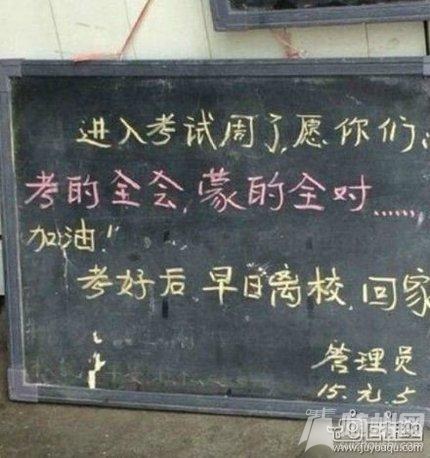 进入考试周了,愿你们,
考的全会,蒙的全对......,
加油!!
考好后,早日离校,回家
管理员
15.元.5
www.juyouqu.com